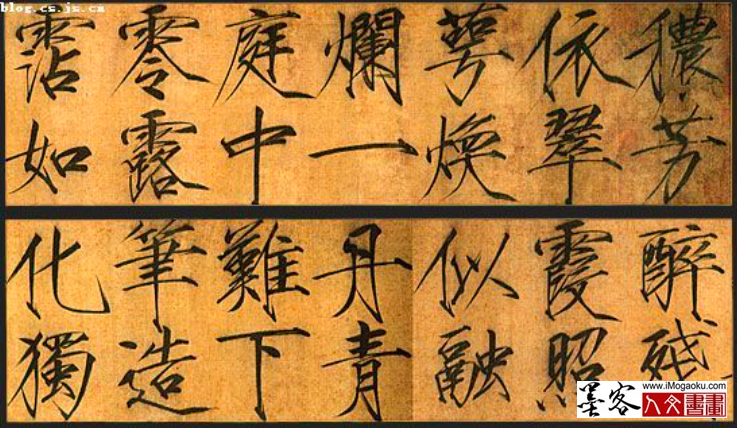 blog.cs.js.cn
穠芳
依翠
萼煥
爛一
庭中
零露
霑如
醉殘
霞照
似融
丹青
難下
筆造
化獨
墨客
www.iMogaoku.com
人文書畫